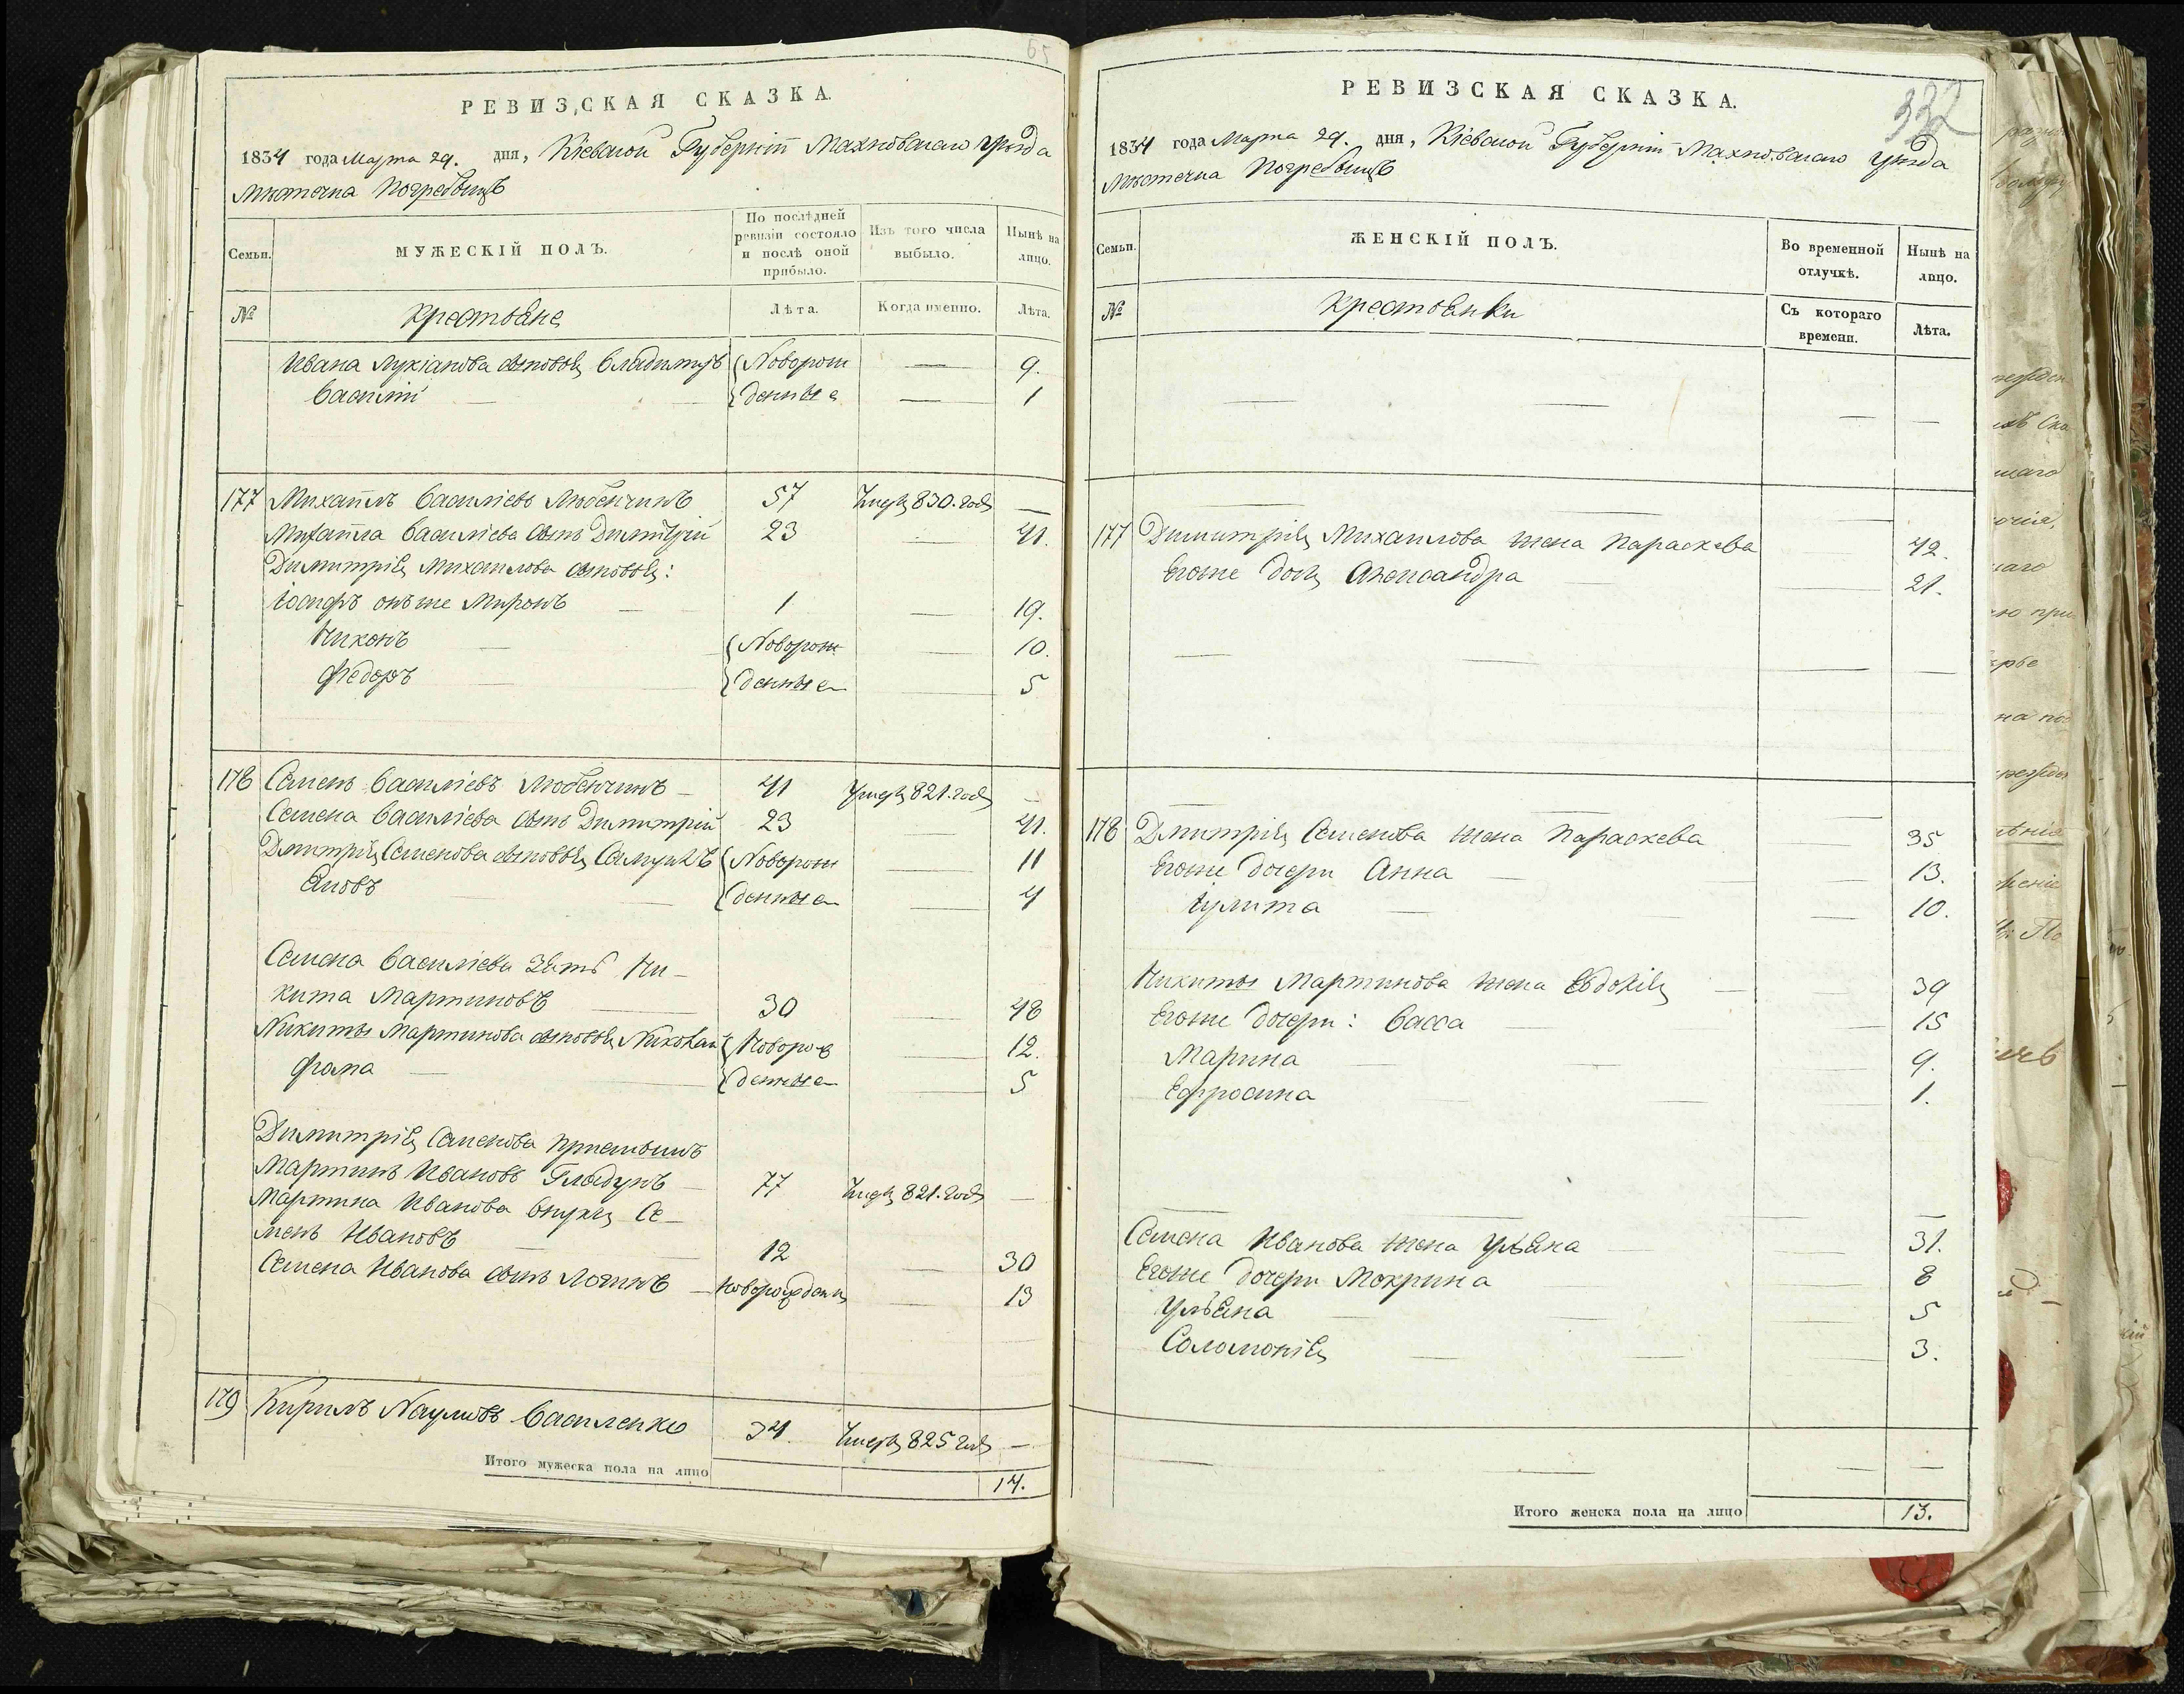 65
РЕВИЗСКАЯ СКАЗКА.
1834 года Марта 29. дня, Кіевской Губерніи Махновскаго уѣзда
Мѣстечка Погребищъ
Семьи.
МУЖЕСКІЙ ПОЛЪ.
По послѣдней ревизіи состояло и послѣ оной прибыло.
Изъ того числа выбыло.
Нынѣ на лицо.
№
Крестьяне
Лѣта.
Когда именно.
Лѣта.
Ивана Лукіанова сыновья Владимиръ { Новорож — 9.
Василій — { денные — 1
177 Михаилъ Василіевъ Любенчинъ 57 Умеръ 830. года —
Михаила Василіева сынъ Димитрій 23 — 41.
Димитрія Михаилова сыновья:
Іосифъ онъ же Миронъ — 1 — 19.
Никонъ — { Новорож — 10.
Федоръ — { денные — 5
178 Семенъ Василіевъ Любенчинъ — 41 Умеръ 821. года —
Семена Василіева сынъ Димитрій 23 — 41.
Дмитрія Семенова сыновья Самуилъ { Новорож — 11
Яковъ — { денные — 4
Семена Василіева Зять Ни-
кита Мартиновъ — 30 — 48
Никиты Мартинова сыновья Николай { Новорож — 12.
Фома — { денные — 5
Димитрія Семенова приемышъ
Мартинъ Ивановъ Гладунъ — 77 Умеръ 821. года —
Мартина Иванова внукъ Се-
менъ Ивановъ — 12 — 30
Семена Иванова сынъ Логинъ — новорожден — 13
179 Кирилъ Наумовъ Василенко 34. Умеръ 825 года —
Итого мужеска пола на лицо 14.
332
РЕВИЗСКАЯ СКАЗКА.
1834 года Марта 29. дня, Кіевской Губерніи Махновскаго уѣзда
Мѣстечка Погребищъ
Семьи.
ЖЕНСКІЙ ПОЛЪ.
Во временной отлучкѣ.
Нынѣ на лицо.
№
Крестьянки
Съ котораго времени.
Лѣта.
177 Димитрія Михаилова жена Параскева — 42.
Егоже дочь Александра — 21.
178 Дмитрія Семенова жена Параскева — 35
Егоже дочери Анна — 13.
Іулита — 10.
Никиты Мартинова жена Евдокія — 39
Егоже дочери: Васса — 15
Марина — 9.
Ефросина — 1.
Семена Иванова жена Ульяна — 31.
Егоже дочери Мокрина — 8
Ульяна — 5
Соломонія — 3.
Итого женска пола на лицо 13.